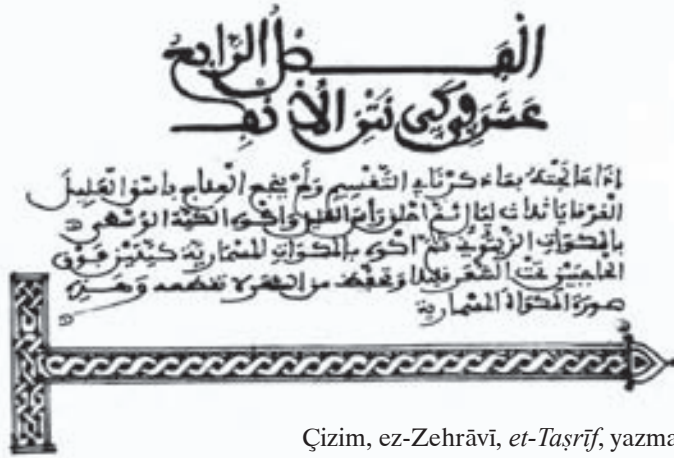 الفصل الرابع
عشر في كي نتن الأنف
إذا عالجته بما ذكرنا في التقسيم ولم ينجع العلاج
ثلاث ليال ثم احلق رأس العليل واكوه الكية الوسطى
بالمكواة الزيتونية ثم اكوه بالمكواة المسمارية كيتين فوق
الحاجبين تحت الشعر قليلا وتحفظ من الشريان لا تقطعه وهذه
صورة المكواة المسمارية
Çizim, ez-Zehrāvī, et-Taṣrīf, yazma